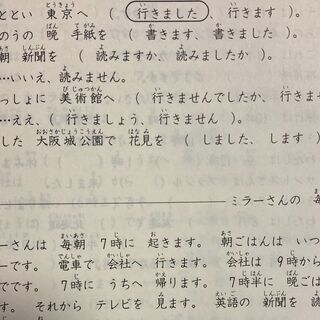 ととい 東京へ （ 行きました、 行きます ）。
のうの 晩 手紙を （ 書きます、 書きました ）。
朝 新聞を （ 読みますか、 読みましたか ）。
…いいえ、 読みません。
っしょに 美術館へ （ 行きませんでしたか、 行き
…ええ、 （ 行きましょう、 行きません ）。
した 大阪城公園で 花見を （ しました、 します ）
ミラーさんの 毎
ーさんは 毎朝 7時に 起きます。 朝ごはんは いつ
ーです。 電車で 会社へ 行きます。 会社は 9時から
ーです。 7時に うちへ 帰ります。 7時半に 晩ごは
す。 それから テレビを 見ます。 英語の 新聞を 読